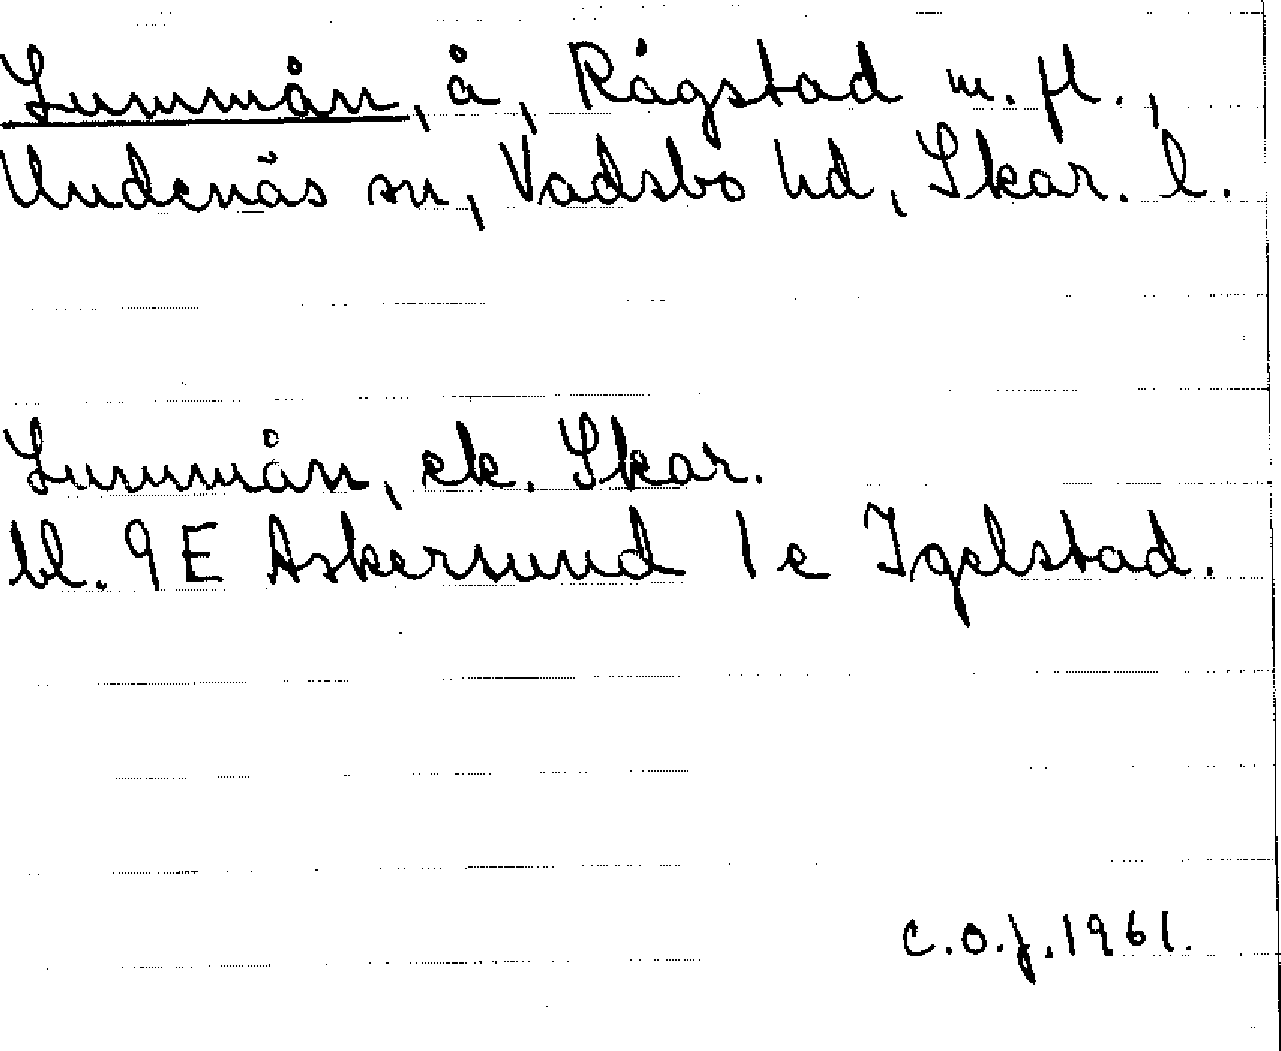 Lummån, å, Rågstad m. fl.,
Undenäs sn, Vadsbo hd, Skar. l.
Lummån, ek. Skar.
bl. 9E Askersund 1 e Igelstad.
C.O.J. 1961.